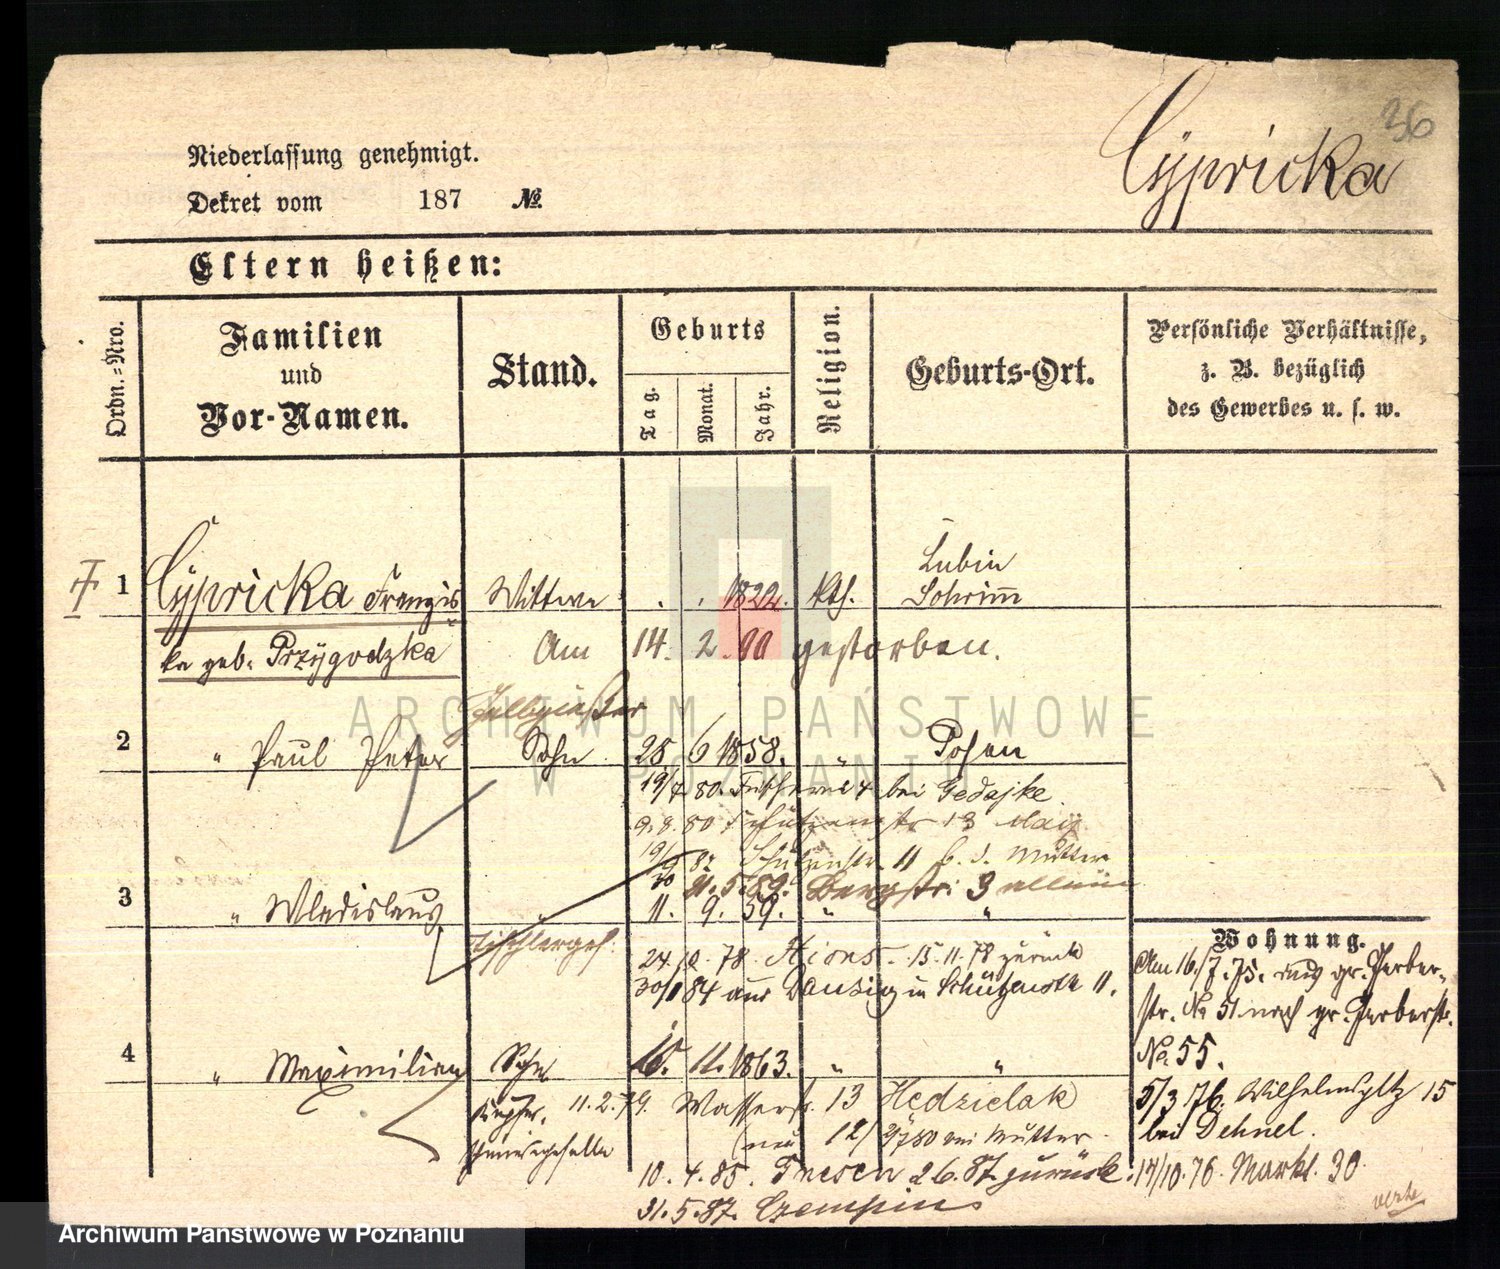 36
Cÿpricka
Niederlassung genehmigt.
Dekret vom 187 №.
Eltern heißen:
Ordn.-Nro.
Familien
und
Vor-Namen.
Stand.
Geburts
Tag.
Monat.
Jahr.
Religion.
Geburts-Ort.
Persönliche Verhältnisse,
z. B. bezüglich
des Gewerbes u. s. w.
1 Cÿpricka Franzis Wittwe . . 1822. kth. Lubin Schrimm
ka geb. Przÿgodzka Am 14. 2. 90 gestorben.
Gelbgießer
2 " Paul Peter Sohn 28. 6 1858. " Posen
19/4 80. bei Gedajke
9.8.80 Schützenstr 13
19/9 82 Schützenstr 11 b. d. Mutter
30 21.5.89. Bergstr. 3 allein
3 " Wladislaus " 11. 9. 59. " "
Tischlerges.
24/10. 78. 15.11.78 zurück
30/1 84 aus Danzig in Schützenstr 11.
4 " Maximilian Sohn 15. 11. 1863. " "
11.2.79. Wasserstr. 13 Hedzielak
12/ bei Mutter.
10.4.85. 26.87. zurück.
31.5.87. Czempin
Wohnung.
Am 16./7.75. aus gr. Gerber-
str. No 51 nach gr. Gerberstr.
No. 55.
5/3 76. Wilhelmspltz 15
bei Dehnel.
14/10.76. Markt. 30.
ARCHIWUM PAŃSTWOWE
W POZNANIU
Archiwum Państwowe w Poznaniu